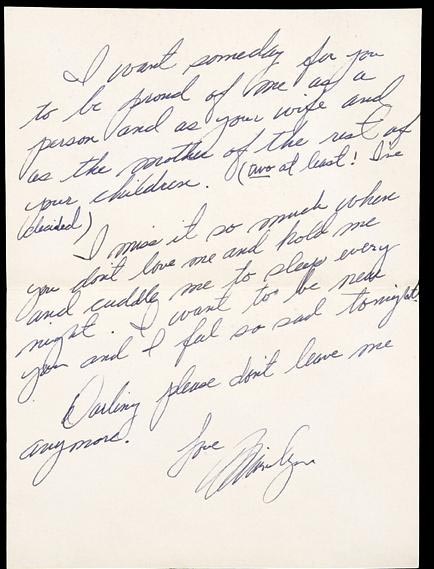 I want someday for you
to be proud of me as a
person and as your wife and
as the mother of the rest of
your children. (two at least! I've
decided)
I miss it so much when
you don't love me and hold me
and cuddle me to sleep every
night. I want to be near
you and I feel so sad tonight.
Darling please don't leave me
anymore.
Love
Marilyn